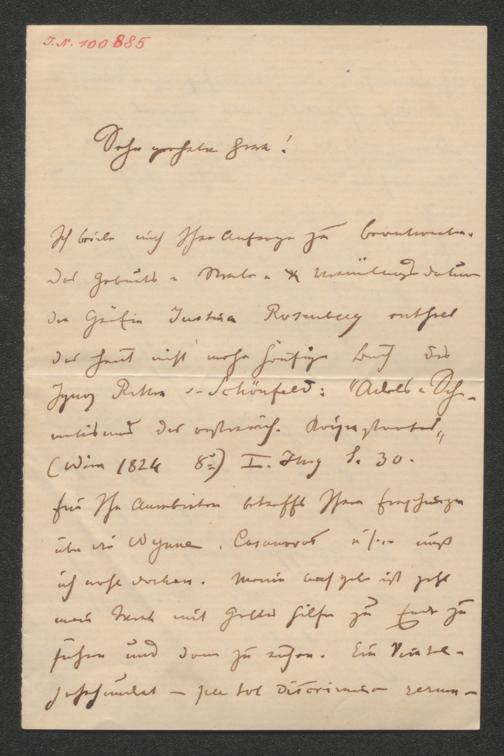 J. N. 100885
Sehr geehrter Herr!
Ich beeile mich Ihre Anfrage zu beantworten.
Das Geburts- u. Sterbe- u. Vermählungsdatum
der Gräfin Justine Rosenberg enthält
das heut nicht mehr häufige Buch des
Ignaz Ritter v. Schönfeld: "Adels-Sche-
matismus des österreich. Kaiserstaates"
(Wien 1824 8°) I. Jhrg S. 30.
Für Ihr Anerbieten betreffs Ihrer Forschungen
über die Wynne, Casanova's muß
ich sehr danken. Meine Aufgabe ist jetzt
mein Werk mit Gottes Hilfe zu Ende zu
führen und dann zu ruhen. Ein Viertel-
jahrhundert – per tot discrimina rerum –